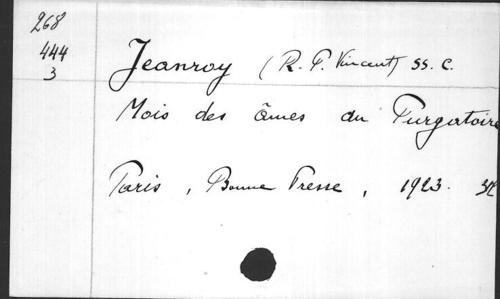 268
444
3
Jeanroy (R. P. Vincent) ss. c.
Mois des âmes du Purgatoire
Paris, Bonne Presse, 1923.